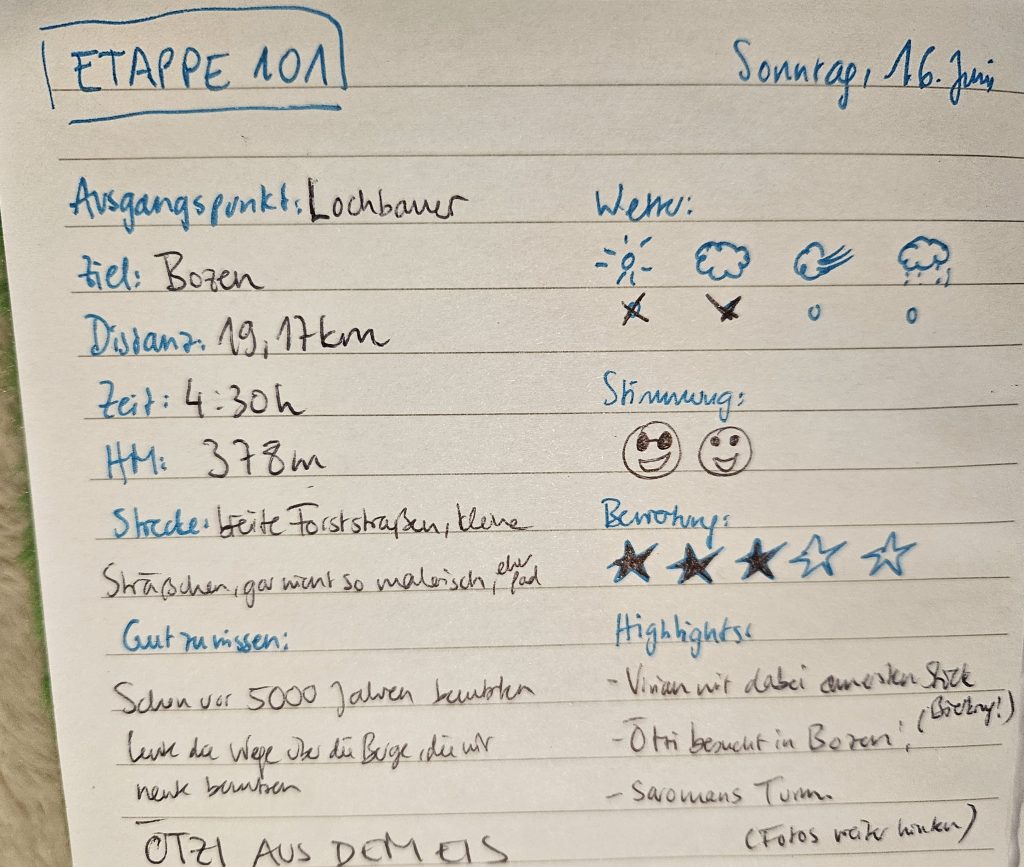 ETAPPE 101
Sonntag, 16. Juni
Ausgangspunkt: Lochbauer
Ziel: Bozen
Distanz: 19,17km
Zeit: 4:30h
HM: 378m
Strecke: breite Forststraßen, kleine
Sträßchen, gar nicht so malerisch, eher fad
Gut zu wissen:
Schon vor 5000 Jahren benutzten
Leute die Wege über die Berge, die wir
heute benutzen
ÖTZI AUS DEM EIS
Wetter:
Stimmung:
Bewertung:
Highlights:
- Vivian mit dabei am ersten Stück
- Ötzi besucht in Bozen!
- Saromans Turm
(Fotos weiter hinten)